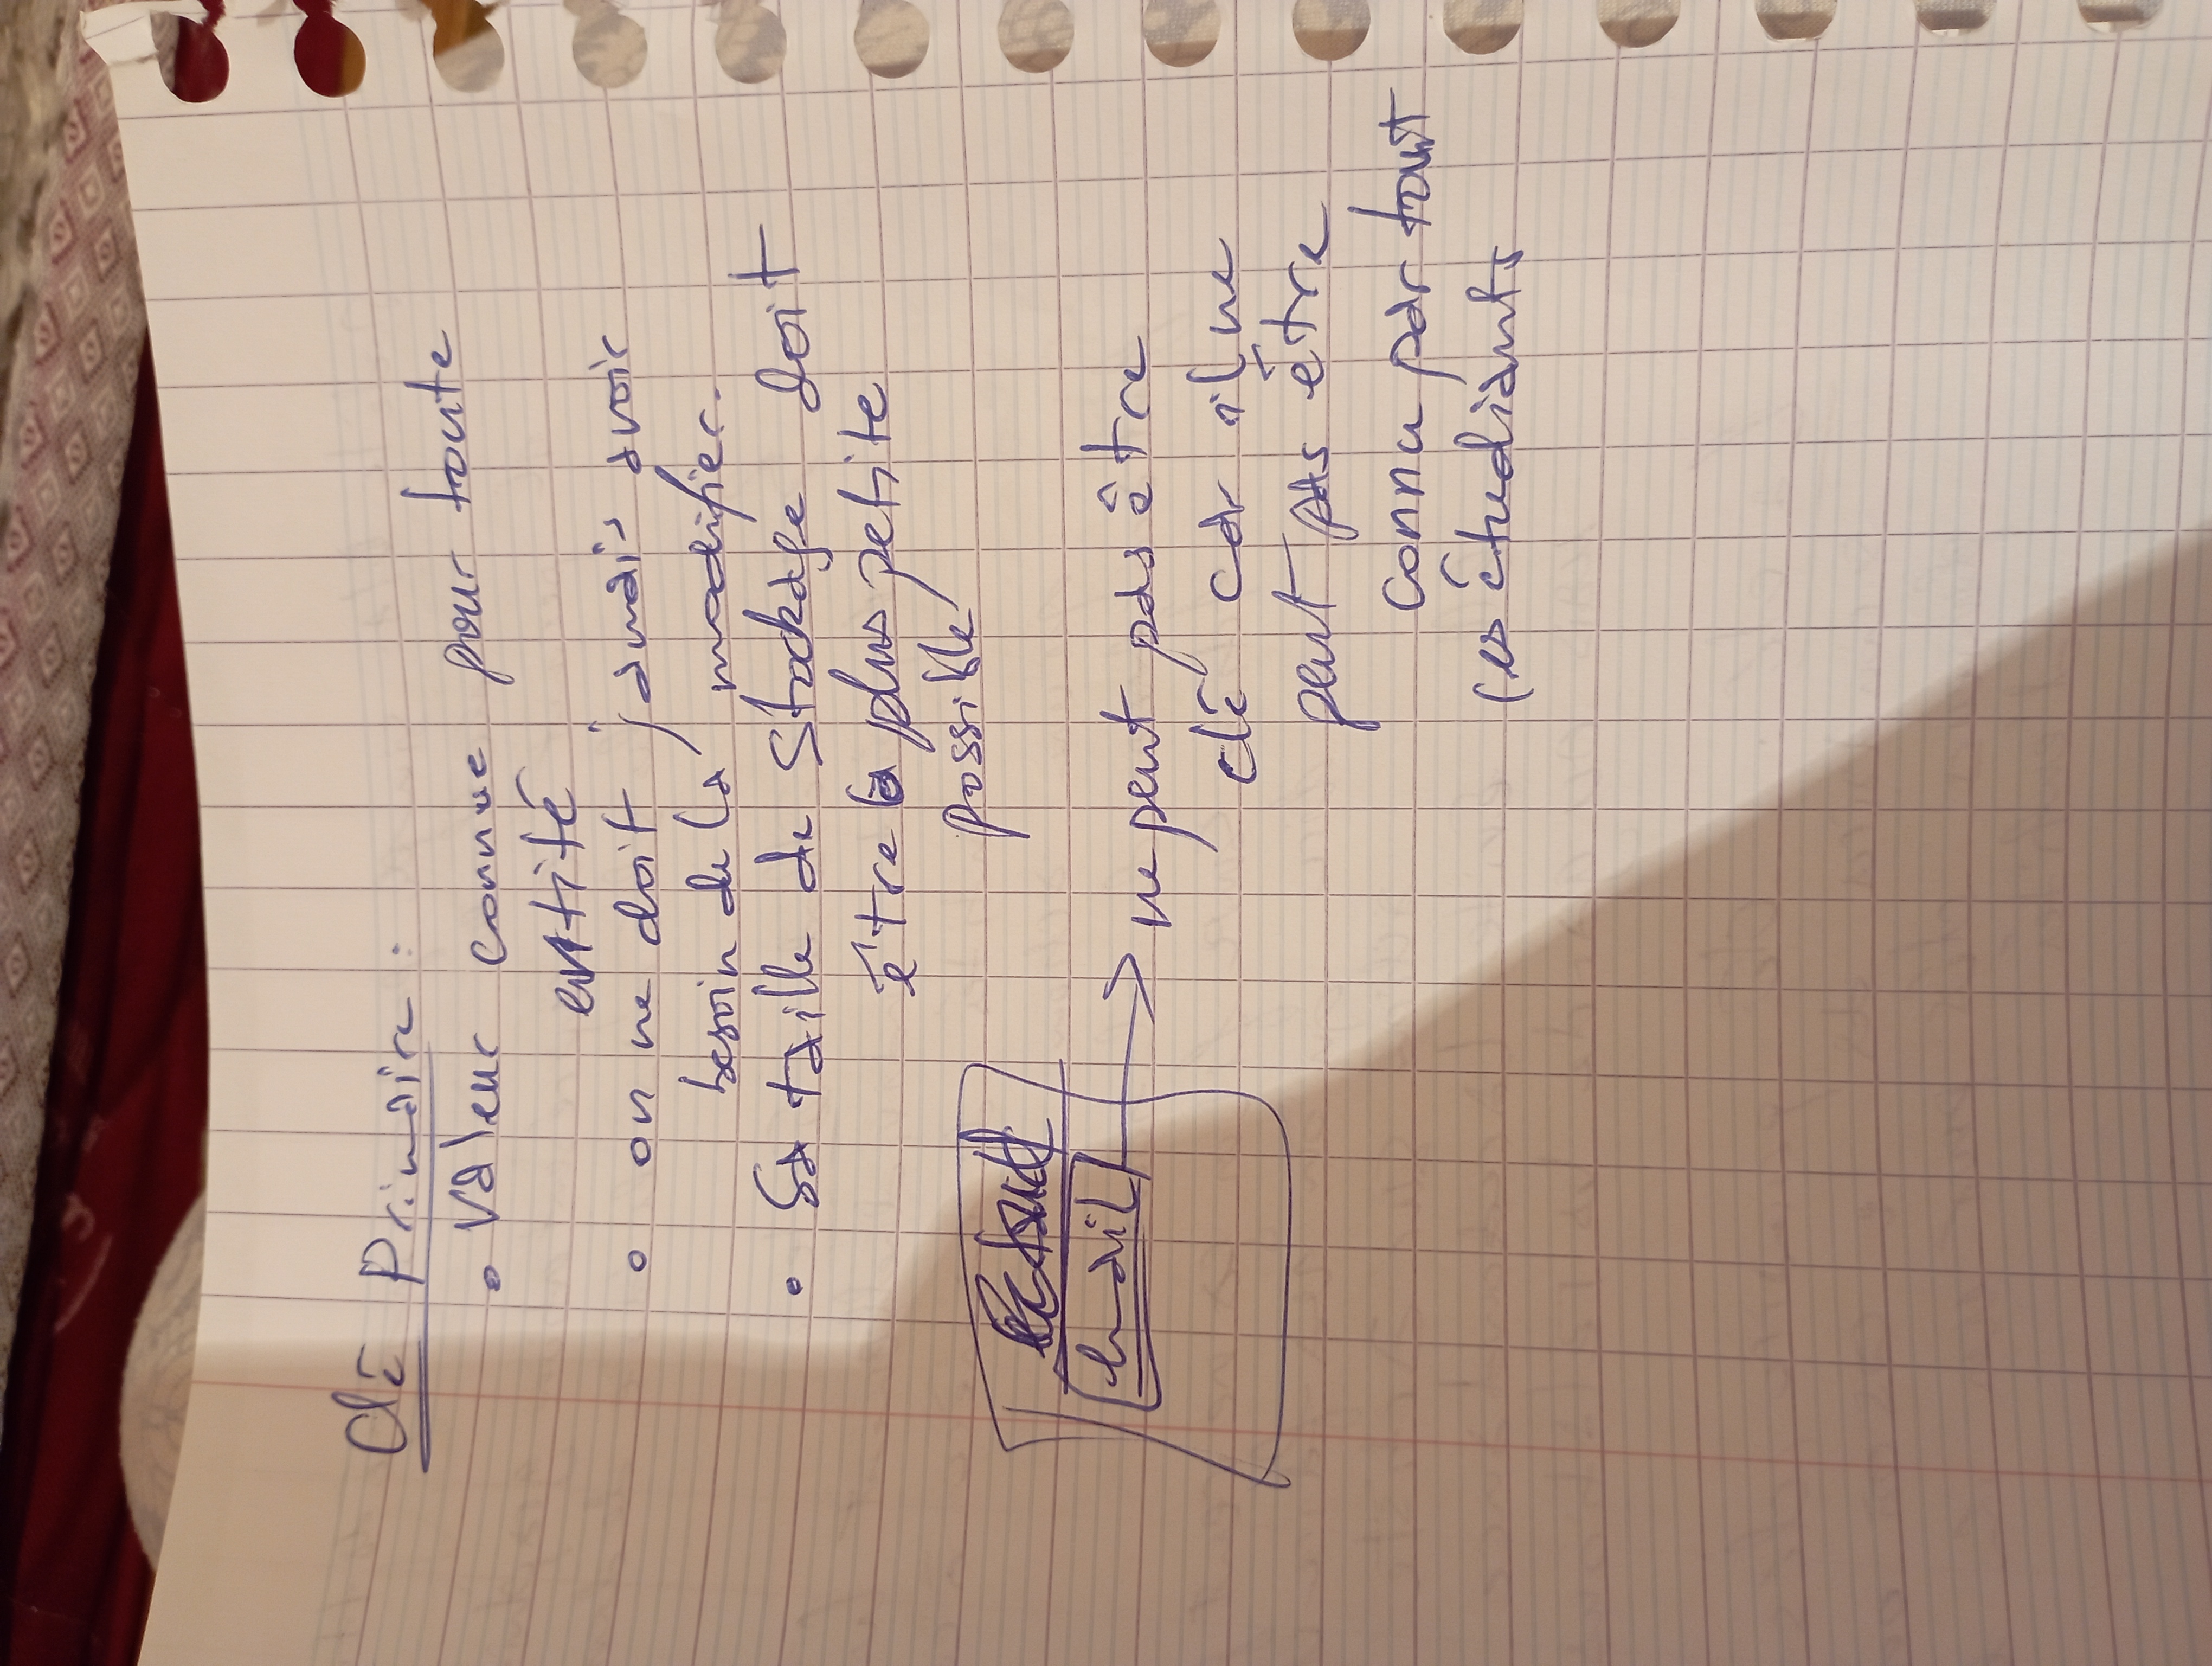 Clé Primaire :
• Valeur connue pour toute
entité
• on ne doit jamais avoir
besoin de la modifier.
• Sa taille de Stockage doit
être la plus petite
possible
Email → ne peut pas être
clé car il ne
peut pas être
connu par tout
les étudiants